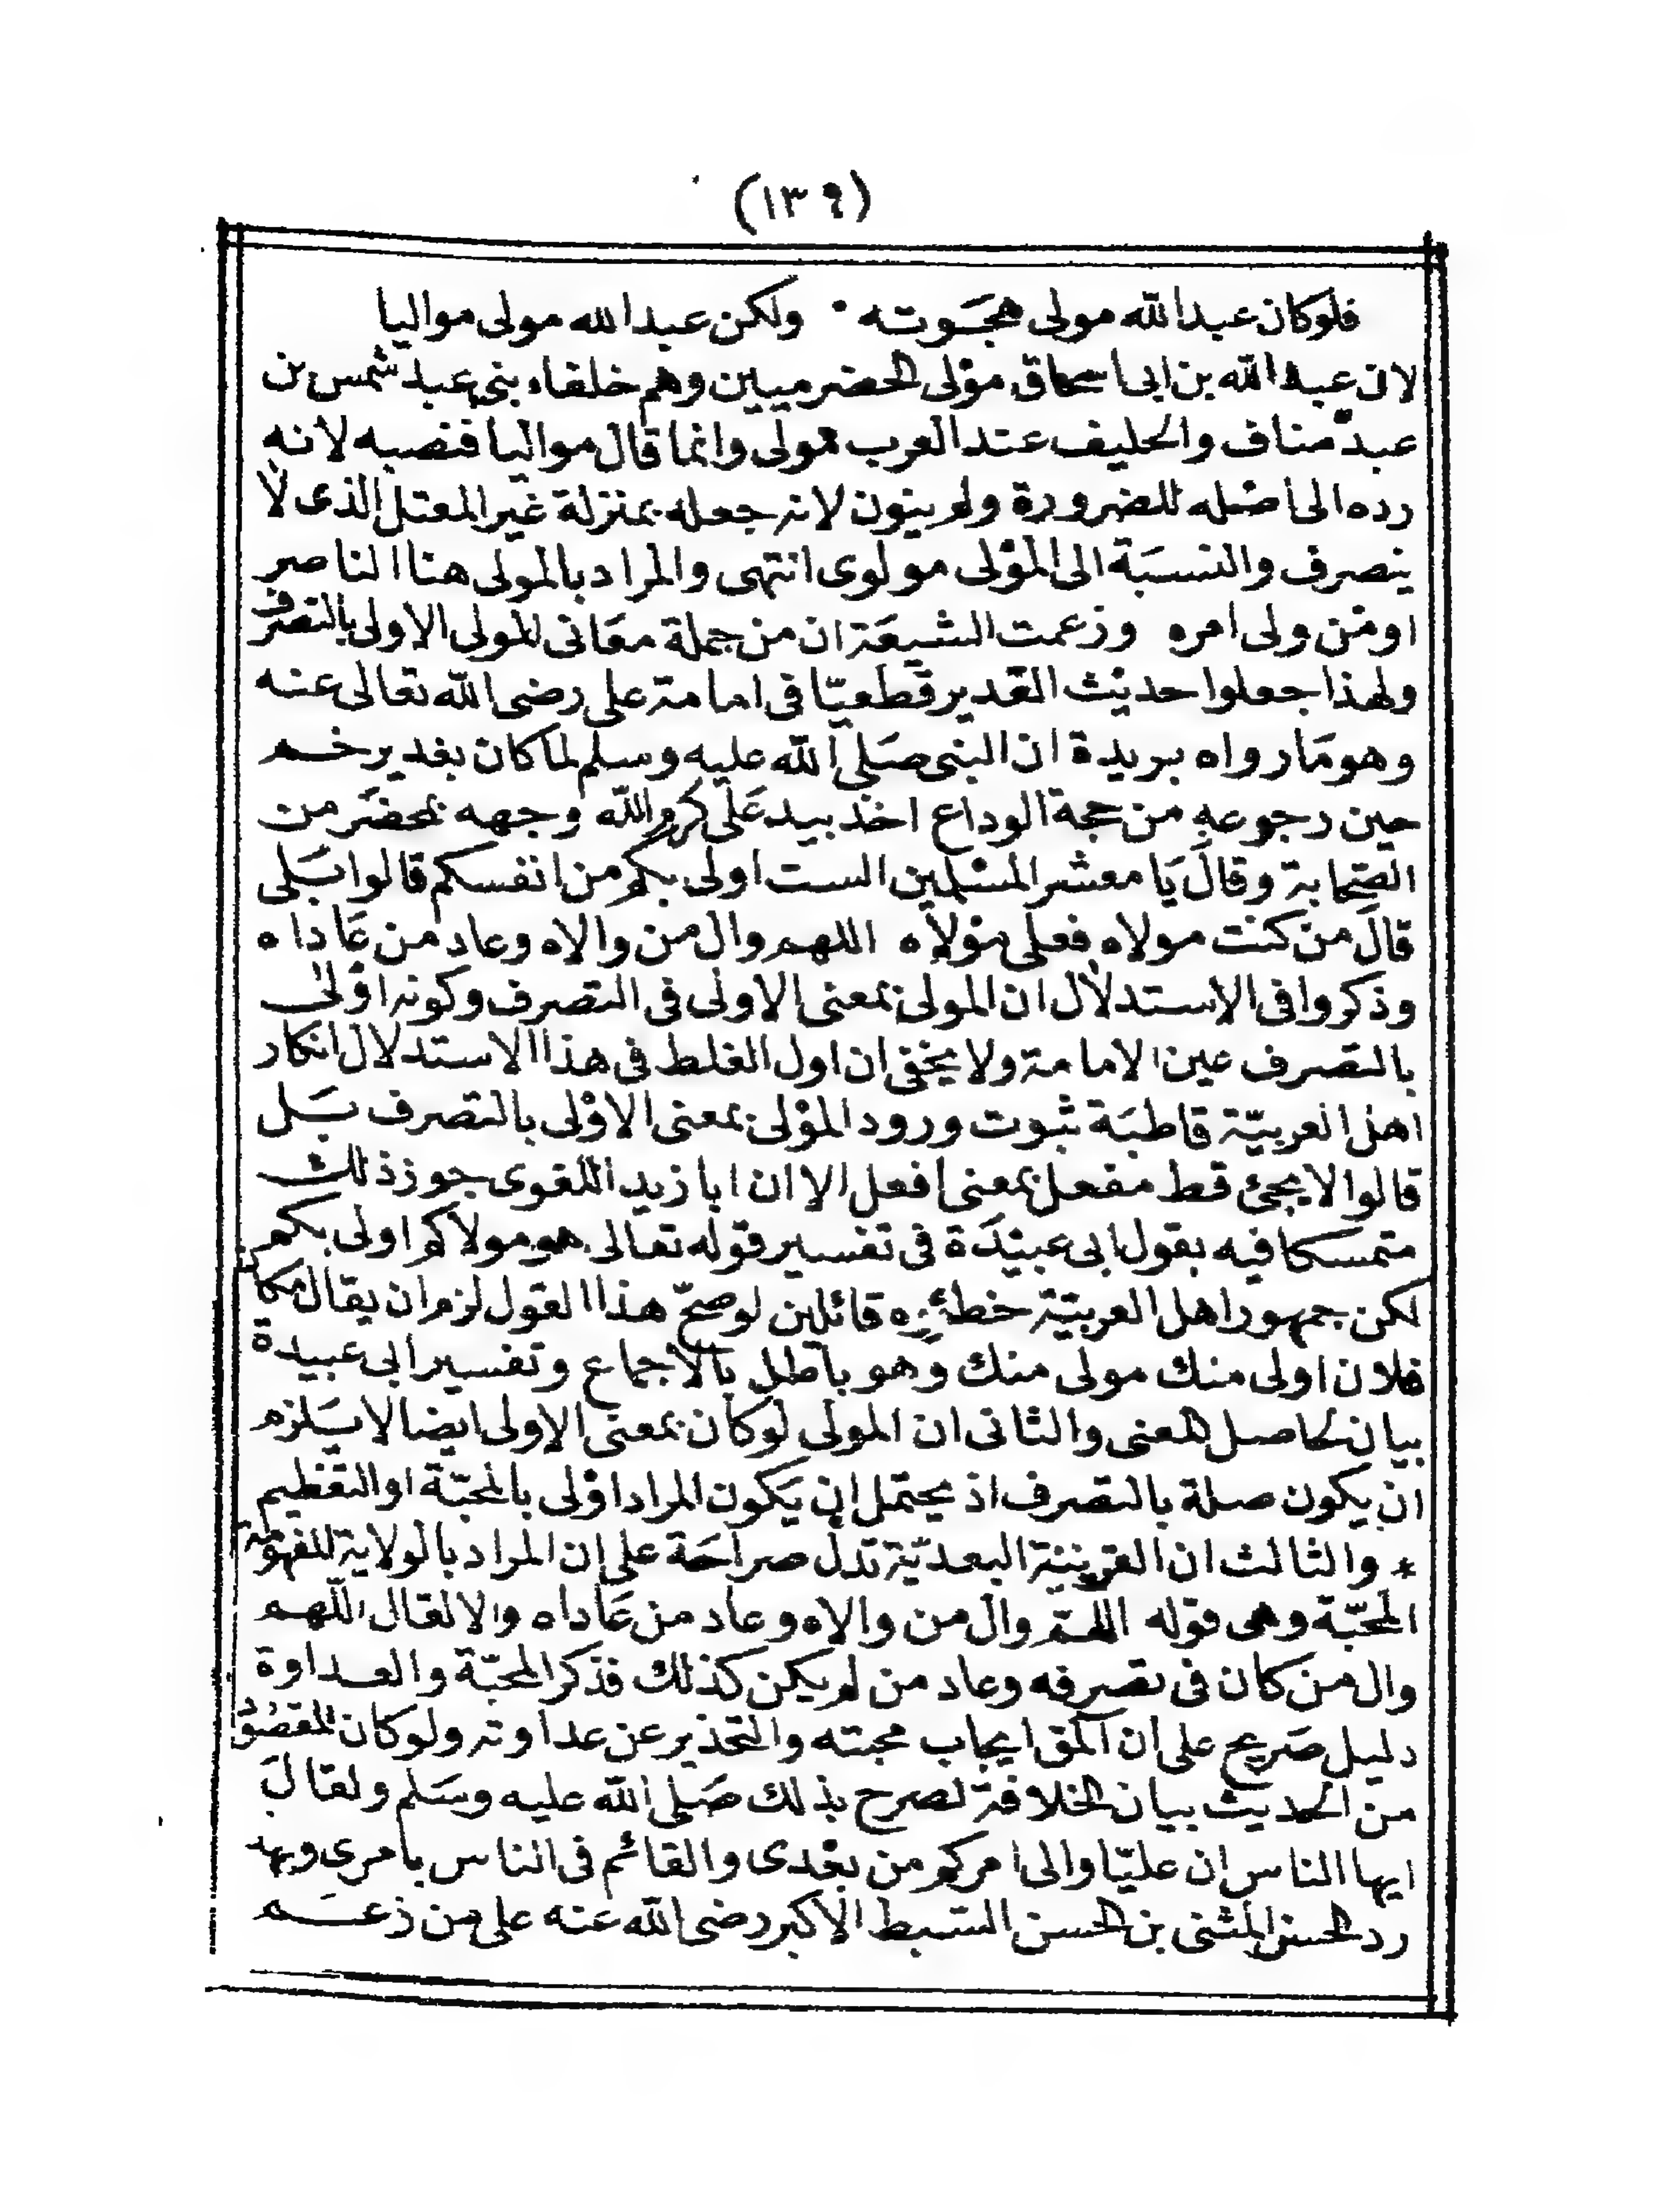 (١٣٩)
فلوكان عبدالله مولى هجوته ٠ ولكن عبدالله مولى مواليا
لان عبدالله بن ابى اسحاق مؤلى الحضرميين وهم خلفاء بنى عبد شمس بن
عبد مناف والحليف عند العرب مولى وانما قال مواليا فنصبه لانه
رده الى اصله للضرورة ولم ينون لانه جعله بمنزلة غير المعتل الذى لا
ينصرف والنسبة الى المولى مولوى انتهى والمراد بالمولى هنا الناصر
او من ولى امره وزعمت الشيعة ان من جملة معانى المولى الاولى بالتصرف
ولهذا جعلوا حديث الغدير قطعيّا فى امامة على رضى الله تعالى عنه
وهو ما رواه بريدة ان النبى صَلى الله عليه وسلم لما كان بغدير خم
حين رجوعه من حجة الوداع اخذ بيد عَلى كرم الله وجهه بمحضَر من
الصحابة وقالَ يَا معشر المسلمين الست اولى بكم من انفسكم قالوا بَلى
قالَ من كنت مولاه فعلى مولاه اللهم وال من والاه وعاد من عَاداه
وذكروا فى الاستدلال ان المولى بمعنى الاولى فى التصرف وكونه اولى
بالتصرف عين الامامة ولا يخفى ان اول الغلط فى هذا الاستدلال انكار
اهل العربيّة قاطبَة ثبوت ورود المولى بمعنى الاولى بالتصرف بَل
قالوا لا يجئ قط مفعل بمعنى افعل الا ان ابا زيد اللغوى جوز ذلك
متمسكا فيه بقول ابى عبيدَة فى تفسير قوله تعالى هو مولاكم اولى بكم
لكن جمهور اهل العربيّة خطئوه قائلين لو صحّ هذا القول لزم ان يقال مكان
فلان اولى منك مولى منك وهو باطل بالاجماع وتفسير ابى عبيدة
بيان لحاصل المعنى والثانى ان المولى لوكان بمعنى الاولى ايضا لا يَلزم
ان يكون صلة بالتصرف اذ يحتمل ان يَكون المراد اولى بالمحبّة او التعظيم
* والثالث ان القرينة البعديّة تدل صراحَة على ان المراد بالولاية المفهومة
المحبّة وهى قوله اللهمّ وال من والاه وعاد من عَاداه والا لقال اللّهم
وال من كان فى تصرفه وعاد من لم يكن كذلك فذكر المحبّة والعداوة
دليل صَريح على ان المق ايجاب محبته والتحذير عن عداوته ولوكان المقصُوْد
من الحديث بيان الخلافة لصرح بذلك صَلى الله عليه وسَلم ولقالَ
ايها الناس ان عليّا والى امركم من بعْدى والقائم فى الناس بامرى وبهذ
رد الحسن المثنى بن الحسن السبط الاكبر رضى الله عنه على من زعَم